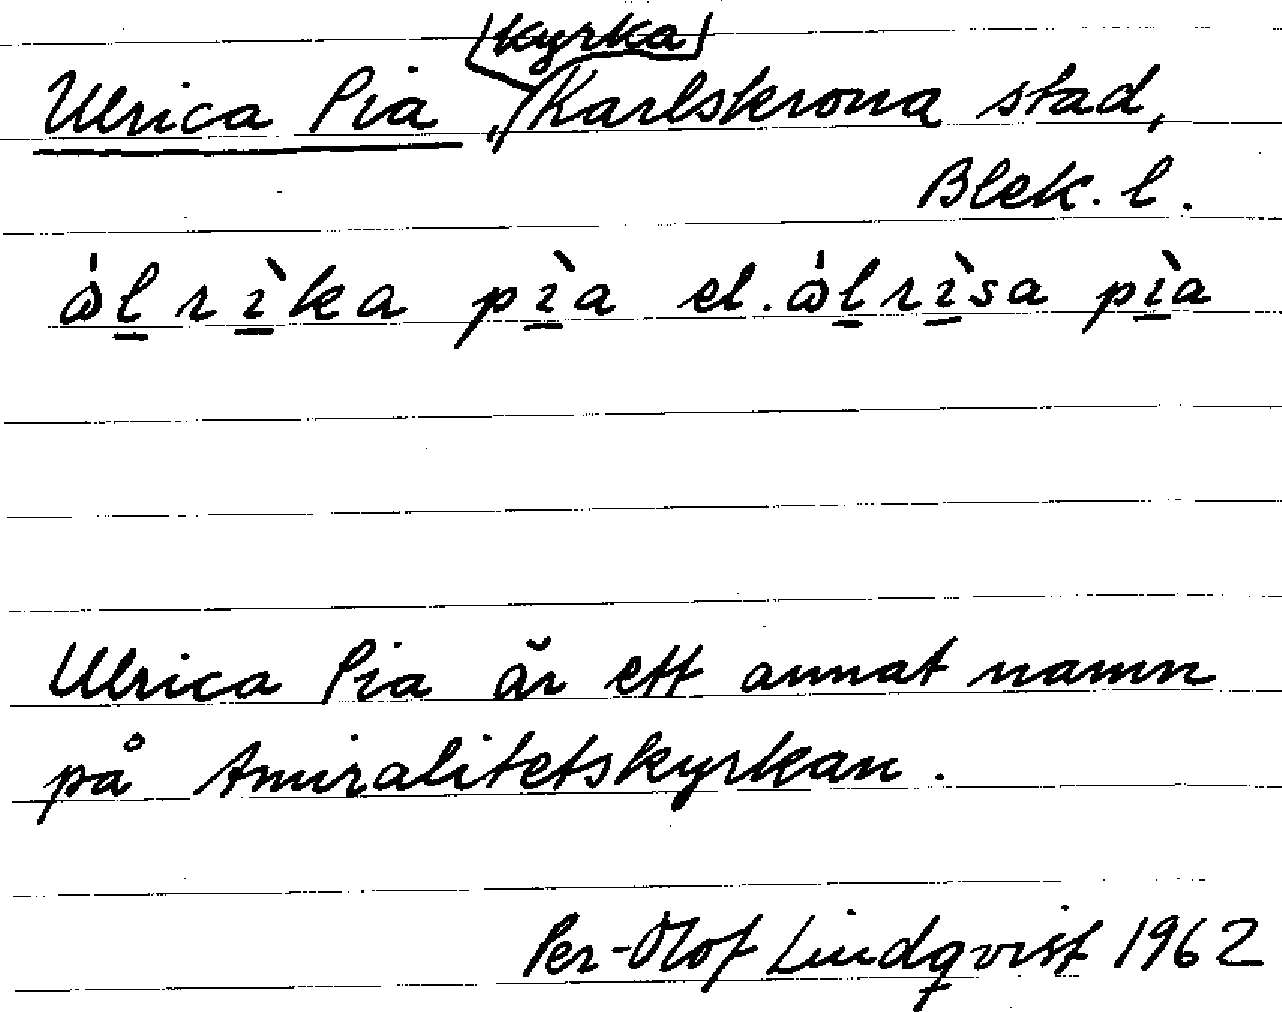 kyrka
Ulrica Pia, Karlskrona stad,
Blek. l.
ɷ̀lrìka pìa el. ɷ̀lrìsa pìa
Ulrica Pia är ett annat namn
på Amiralitetskyrkan.
Per-Olof Lindqvist 1962